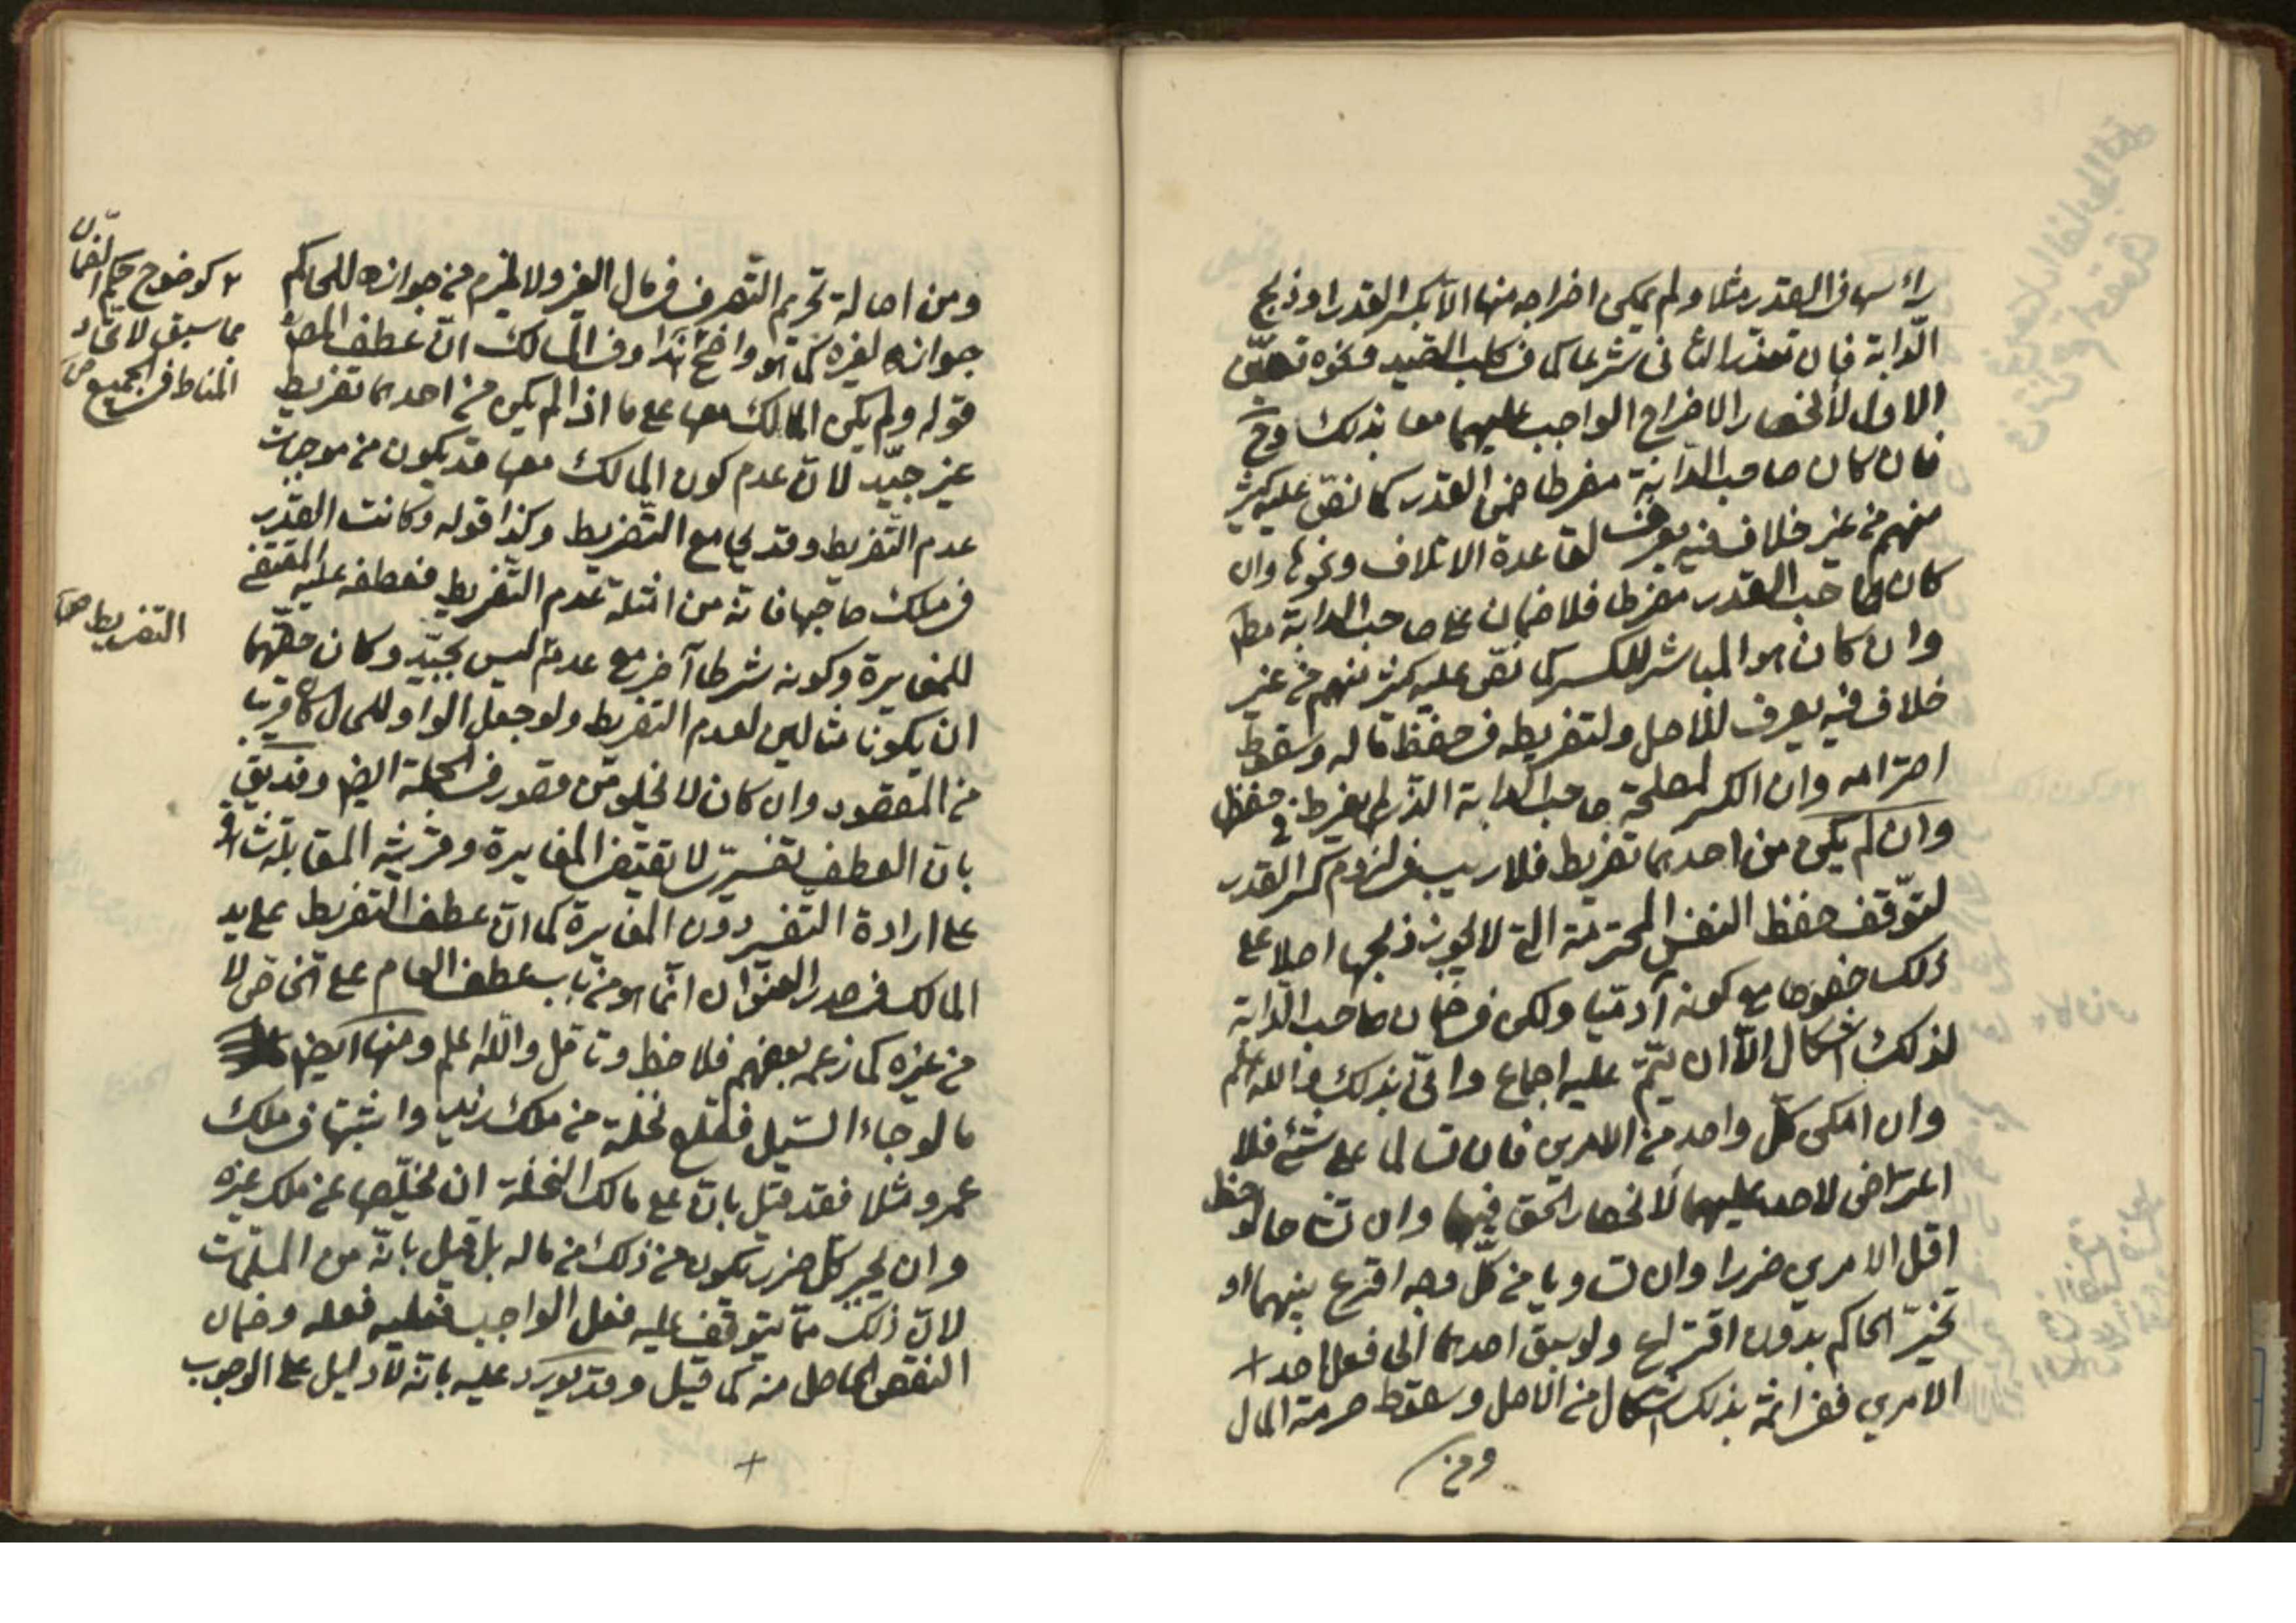 رأسها في القدر مثلا ولم يمكن اخراجه منها الا بكسر القدر او ذبح
الدّابة فان تعذر الثاني شرعا كما في كلب الصيد ونحوه تعيّن
الاول لانحصار الاخراج الواجب عليهما معا بذلك وح
فان كان صاحب الدّابة مفرطا ضمن القدر كما نصّ عليه كثير
منهم من غير خلاف فيه يعرف لقاعدة الاتلاف ونحوها وان
كان صاحب القدر مفرطا فلا ضمان على صاحب الدابة مطلقا
وان كان هو المباشر للكسر كما نصّ عليه كثير منهم من غير
خلاف فيه يعرف للاصل ولتفريطه في حفظ ماله وسقوط
احترامه وان الكسر لمصلحة صاحب الدابة الذي لم يفرط في حفظ
وان لم يكن من احدهما تفريط فلا ريب في لزوم كسر القدر
لتوّقف حفظ النفس المحترمة التي لا يجوز ذبحها اصلا على
ذلك خصوصا مع كونه آدميّا ولكن في ضمان صاحب الدّابة
لذلك اشكال الّا ان يتمّ عليه اجماع وانّى بذلك والله اعلم
وان امكن كلّ واحد من الامرين فان تسالما على شئ فلا
اعتراض لاحد عليهما لانحصار الحق فيهما وان تشاحا لوحظ
اقل الامرين ضررا وان تساويا من كلّ وجه اقرع بينهما او
تخيّر الحاكم بدون اقتراع ولو سبق احدهما الى فعل احد +
الامرين ففي اثمه بذلك اشكال من الاصل وسقوط حرمة المال
ومن
ومن اصالة تحريم التصرف في مال الغير ولا يلزم من جوازه للحاكم
جوازه لغيره كما هو واضح هذا وفي المسالك انّ عطف المصنّف
قوله ولم يكن المالك معها على ما اذا لم يكن من احدهما تفريط
غير جيّد لانّ عدم كون المالك معها قد يكون من موجبات
عدم التّفريط وقد يجامع التّفريط وكذا قوله وكانت القدر
في ملك صاحبها فانه من امثلة عدم التّفريط فعطفه عليه المقتضي
للمغايرة وكونه شرطا آخر مع عدمه ليس بجيّد وكان حقّهما
ان يكونا مثالين لعدم التفريط ولو جعل الواو للحال كان قريبا
من المقصود وان كان لا يخلو من قصور في الجملة ايضا وقد يقال
بانّ العطف تفسيريّ لا يقتضي المغايرة وقرينة المقابلة شاهدة
على ارادة التفسير دون المغايرة كما انّ عطف التفريط على يد
المالك في صدر العنوان انّما هو من باب عطف العام على الخاص لا
من غيره كما زعمه بعضهم فلاحظ وتامّل والله اعلم ومنها ايضا
ما لو جاء السّيل فقلع نخلة من ملك زيد واثبتها في ملك
عمرو مثلا فقد قيل بانّ على مالك النخلة ان يخلّصها عن ملك غيره
وان يجبر كلّ ضرر يكون من ذلك من ماله بل قيل بانّه من المسلّمات
لانّ ذلك ممّا يتوقف عليه فعل الواجب فعليه فعله وضمان
النقص الحاصل منه كما قيل وقد يورد عليه بانّه لا دليل على الوجوب
+
٢ كوضوح حكم الضمان
مما سبق لاتحاد
المناط في الجميع ص
التفريط ص